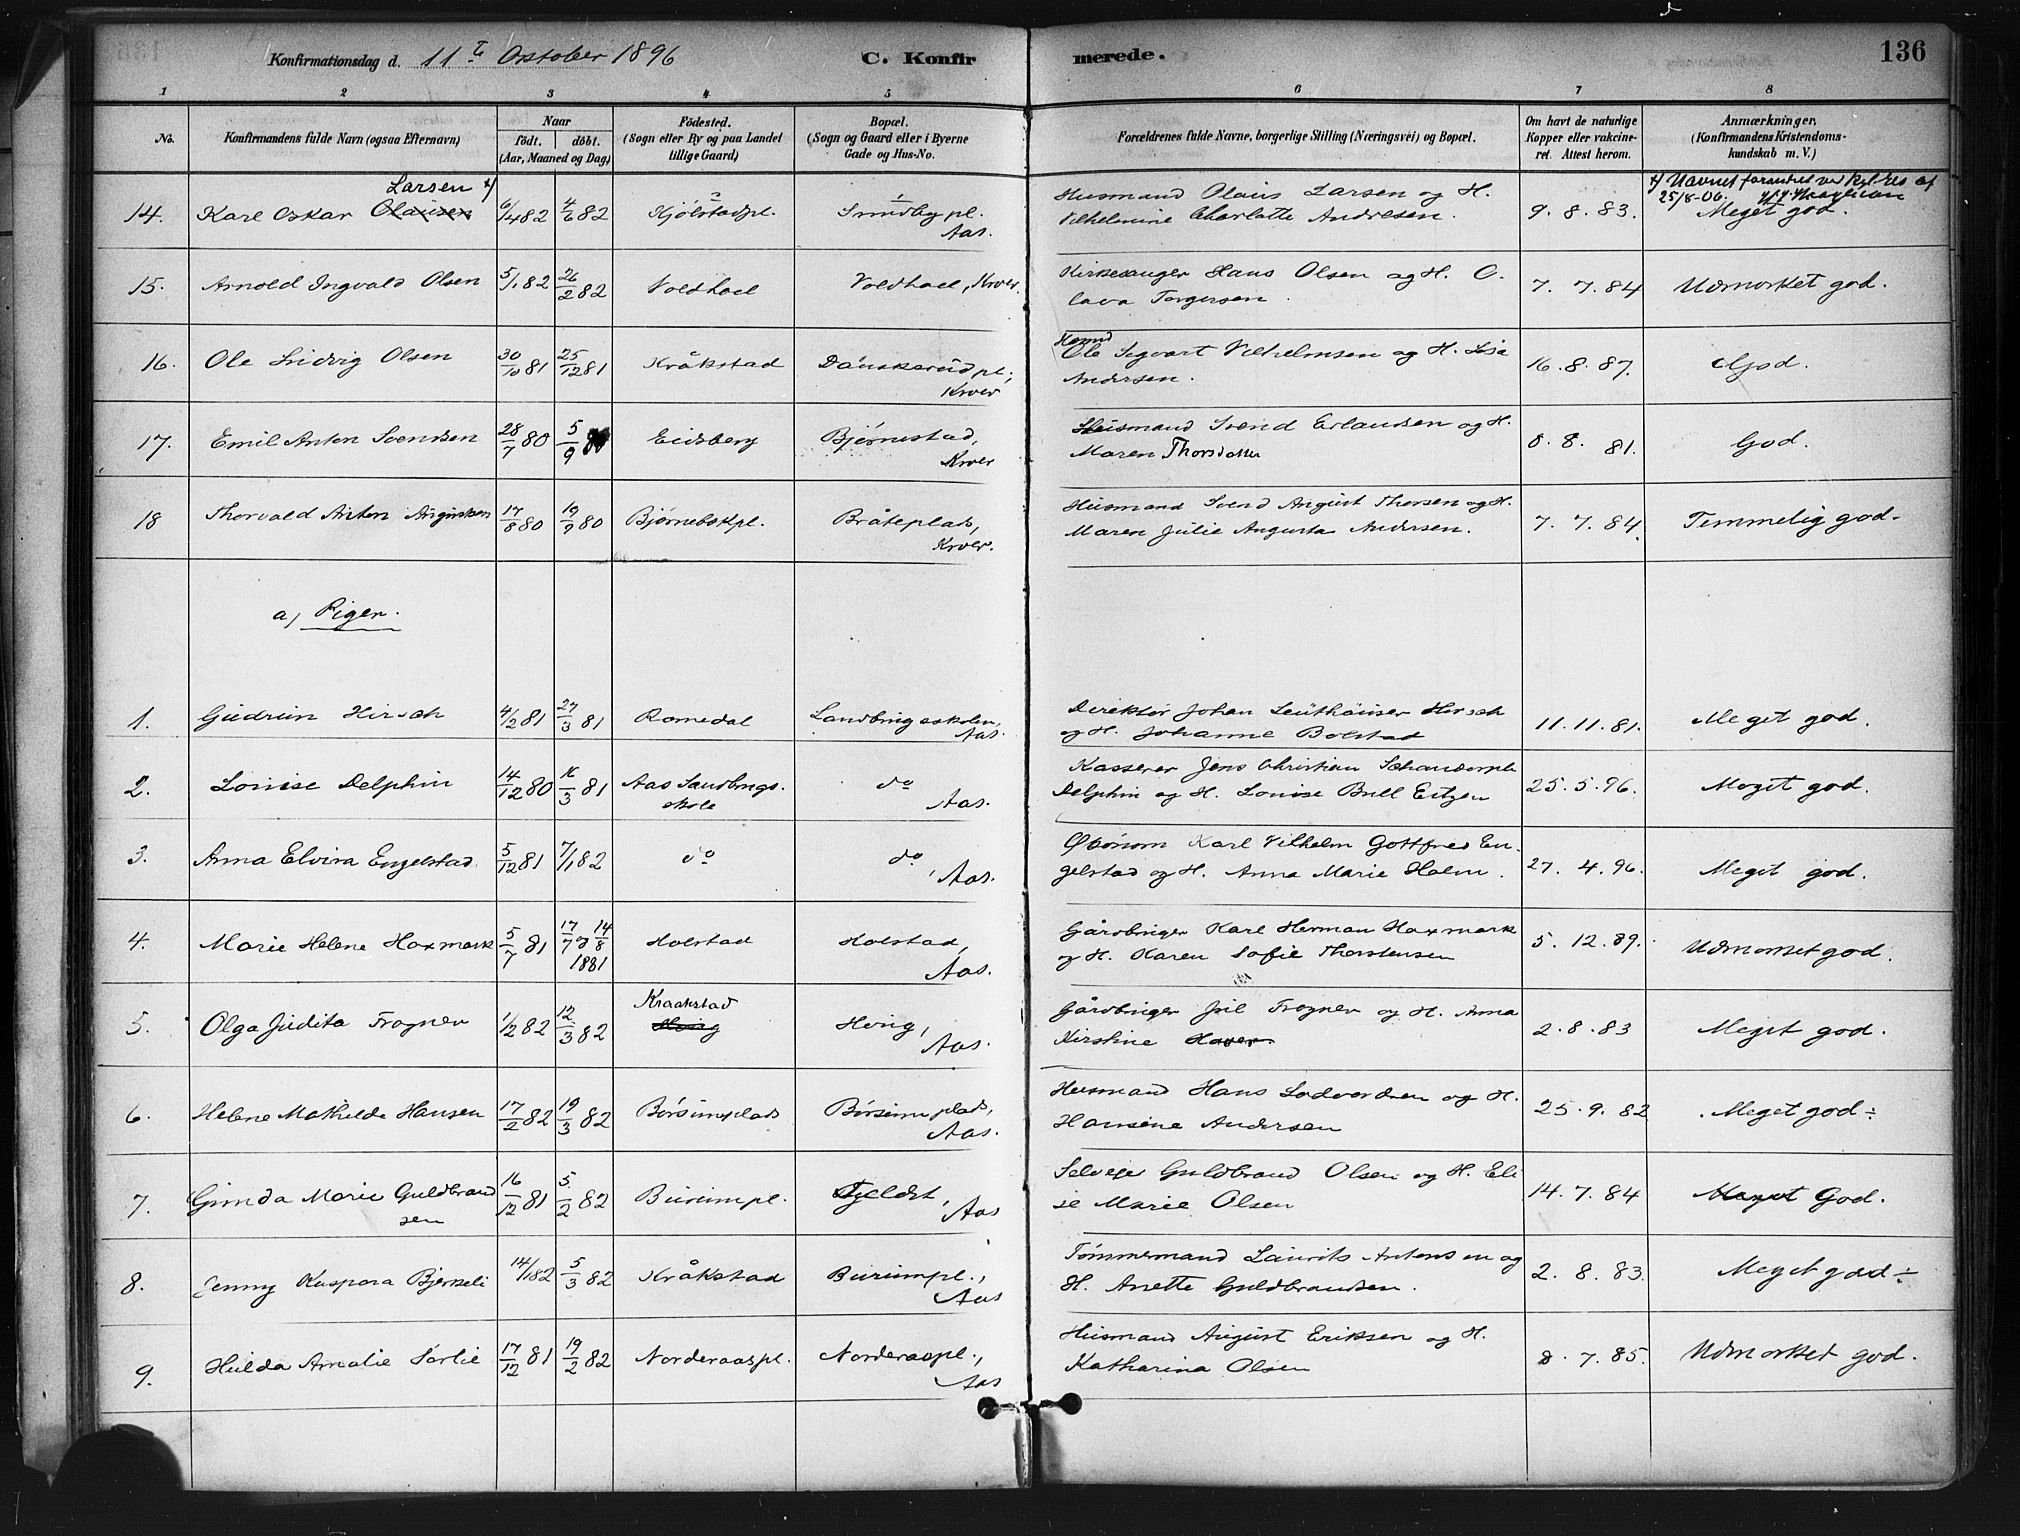 Konfirmationsdag d. 11te Oktober 1896
C. Konfirmerede.
136
1 2 3 4 5 6 7 8
No. Konfirmandens fulde Navn (ogsaa Efternavn) Naar født. døbt. (Aar, Maaned og Dag) Fødested. (Sogn eller By og paa Landet tillige Gaard) Bopæl. (Sogn og Gaard eller i Byerne Gade og Hus-No. Forældrenes fulde Navne, borgerlige Stilling (Næringsvei) og Bopæl. Om havt de naturlige Kopper eller vakcineret. Attest herom. Anmærkninger. (Konfirmandens Kristendomskundskab m. V.)
Larsen x)
x) Navnet forandret ved Kgl. Res af 25/8-06.
14. Karl Oskar Olausen 6/4 82 4/6 82 Kjölstadpl. Smedby pl. Aas. Husmand Olaus Larsen og H. Vilhelmine Charlotte Andresen. 9. 8. 83. Meget god.
15. Arnold Ingvald Olsen 5/1 82 26/2 82 Voldhoel Voldhoel, Kroer. Kirkesanger Hans Olsen og H. Olava Torgersen. 7. 7. 84 Udmerket god.
16. Ole Ludvig Olsen 30/10 81 25/12 81 Kråkstad Danskerud pl., Kroer Husmd Ole Segvart Vilhelmsen og H. Lise Andersen. 16. 8. 87. God.
17. Emil Anton Svendsen 28/7 80 5/9 80 Eidsberg Bjørnestad, Kroer Husmand Svend Erlandsen og H. Maren Thorsdatter 8. 8. 81. God.
18 Thorvald Anton Augustsen 17/8 80 19/9 80 Bjørnebekpl. Bråteplads, Kroer. Husmand Svend August Thorsen og H. Maren Julie Augusta Andersen. 7. 7. 84. Temmelig god.
a) Piger.
1. Gudrun Hirsch 4/2 81 27/3 81 Romedal Landbrugsskolen, Aas. Direktør Johan Leuthäuser Hirsch og H. Johanne Bolstad 11. 11. 81. Meget god.
2. Louise Delphin 14/12 80 /3 81 Aas Landbrugsskole do Aas. Kasserer Jens Christian Delphin og H. Louise Brill Eitzen 25. 5. 96. Meget god.
3. Anna Elvira Engelstad 5/12 81 7/1 82 do do, Aas. Økonom Karl Vilhelm Gottfred Engelstad og H. Anna Marie Holm. 27. 4. 96. Meget god.
4. Marie Helene Haxmark 5/7 81 17/7 & 14/8 1881 Holstad Holstad, Aas. Gårdbruger Karl Herman Haxmark og H. Karen Sofie Thorstensen 5. 12. 89. Udmerket god.
5. Olga Judita Frogner 1/2 82 12/3 82 Kraakstad Holstad Aas. Gårdbruger Juel Frogner og H. Anna Kirstine Haver 2. 8. 83 Meget god.
6. Helene Mathilde Hansen 17/2 82 19/3 82 Børsumplads Børsumplads, Aas. Husmand Hans Lodvordsen og H. Hansine Andersen 25. 9. 82 Meget god ÷
7. Gunda Marie Guldbrandsen 16/12 81 5/2 82 Burumpl. Fjeldet, Aas Selveje Guldbrand Olsen og H. Elise Marie Olsen 14. 7. 84 Meget God.
8. Jenny Kaspara Bjerkeli 14/1 82 5/3 82 Kråkstad Burumpl., Aas Tømmermand Laurits Antonsen og H. Anette Guldbrandsen. 2. 8. 83. Meget god ÷
9. Hulda Amalie Sørlie 17/12 81 19/2 82 Norderaaspl. Norderaaspl., Aas Husmand August Eriksen og H. Katharina Olsen 8. 7. 85. Udmerket god.